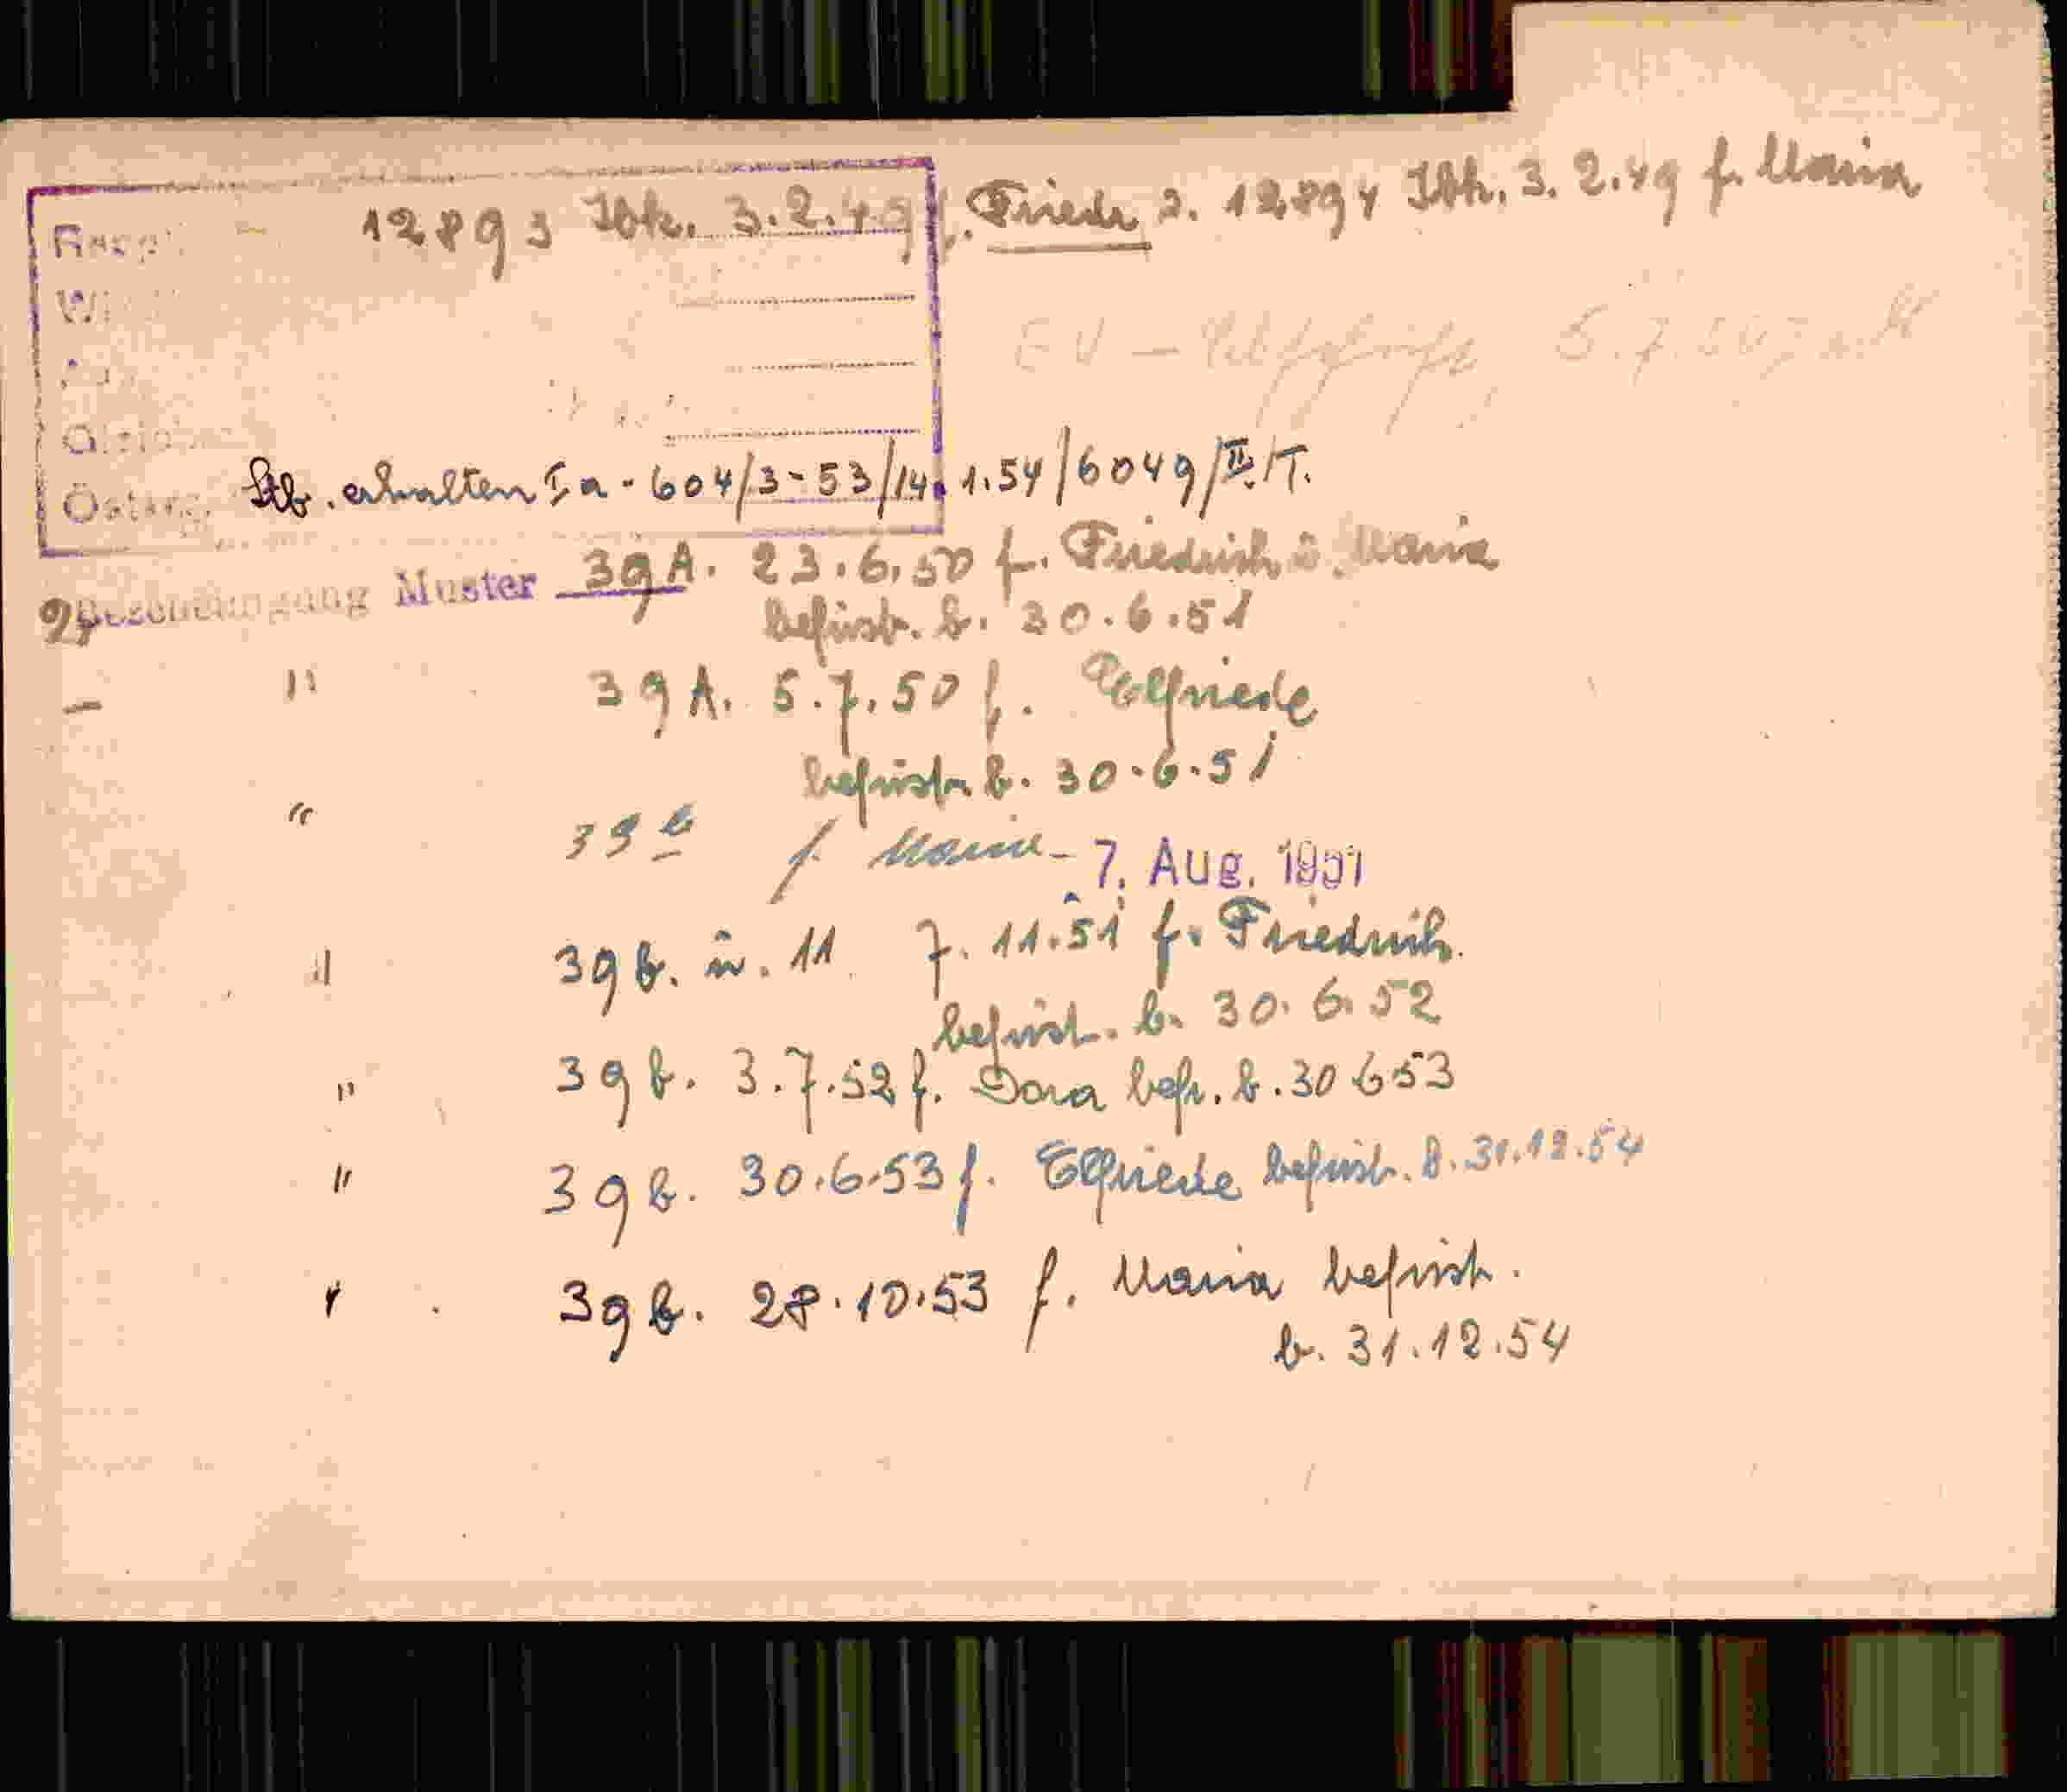 12893 Ibk. 3.2.49 f. Friedr u. 12894 Ibk. 3.2.49 f. Maria
EV - 5.7.
Stb. erhalten I a - 604/3-53/14.1.54/6049/II/T.
Bescheinigung Muster 39A. 23.6.50 f. Friedrich u. Maria
befrist. b. 30.6.51
" 39A. 5.7.50 f. Elfriede
befrist. b. 30.6.51
" 39 b f. Maria - 7. Aug. 1951
" 39b. u. 11 7.11.51 f. Friedrich.
befrist. b. 30.6.52
" 39b. 3.7.52 f. Dora befr. b. 30 6 53
" 39b. 30.6.53 f. Elfriede befrist. b. 31.12.54
" 39b. 28.10.53 f. Maria befrist.
b. 31.12.54